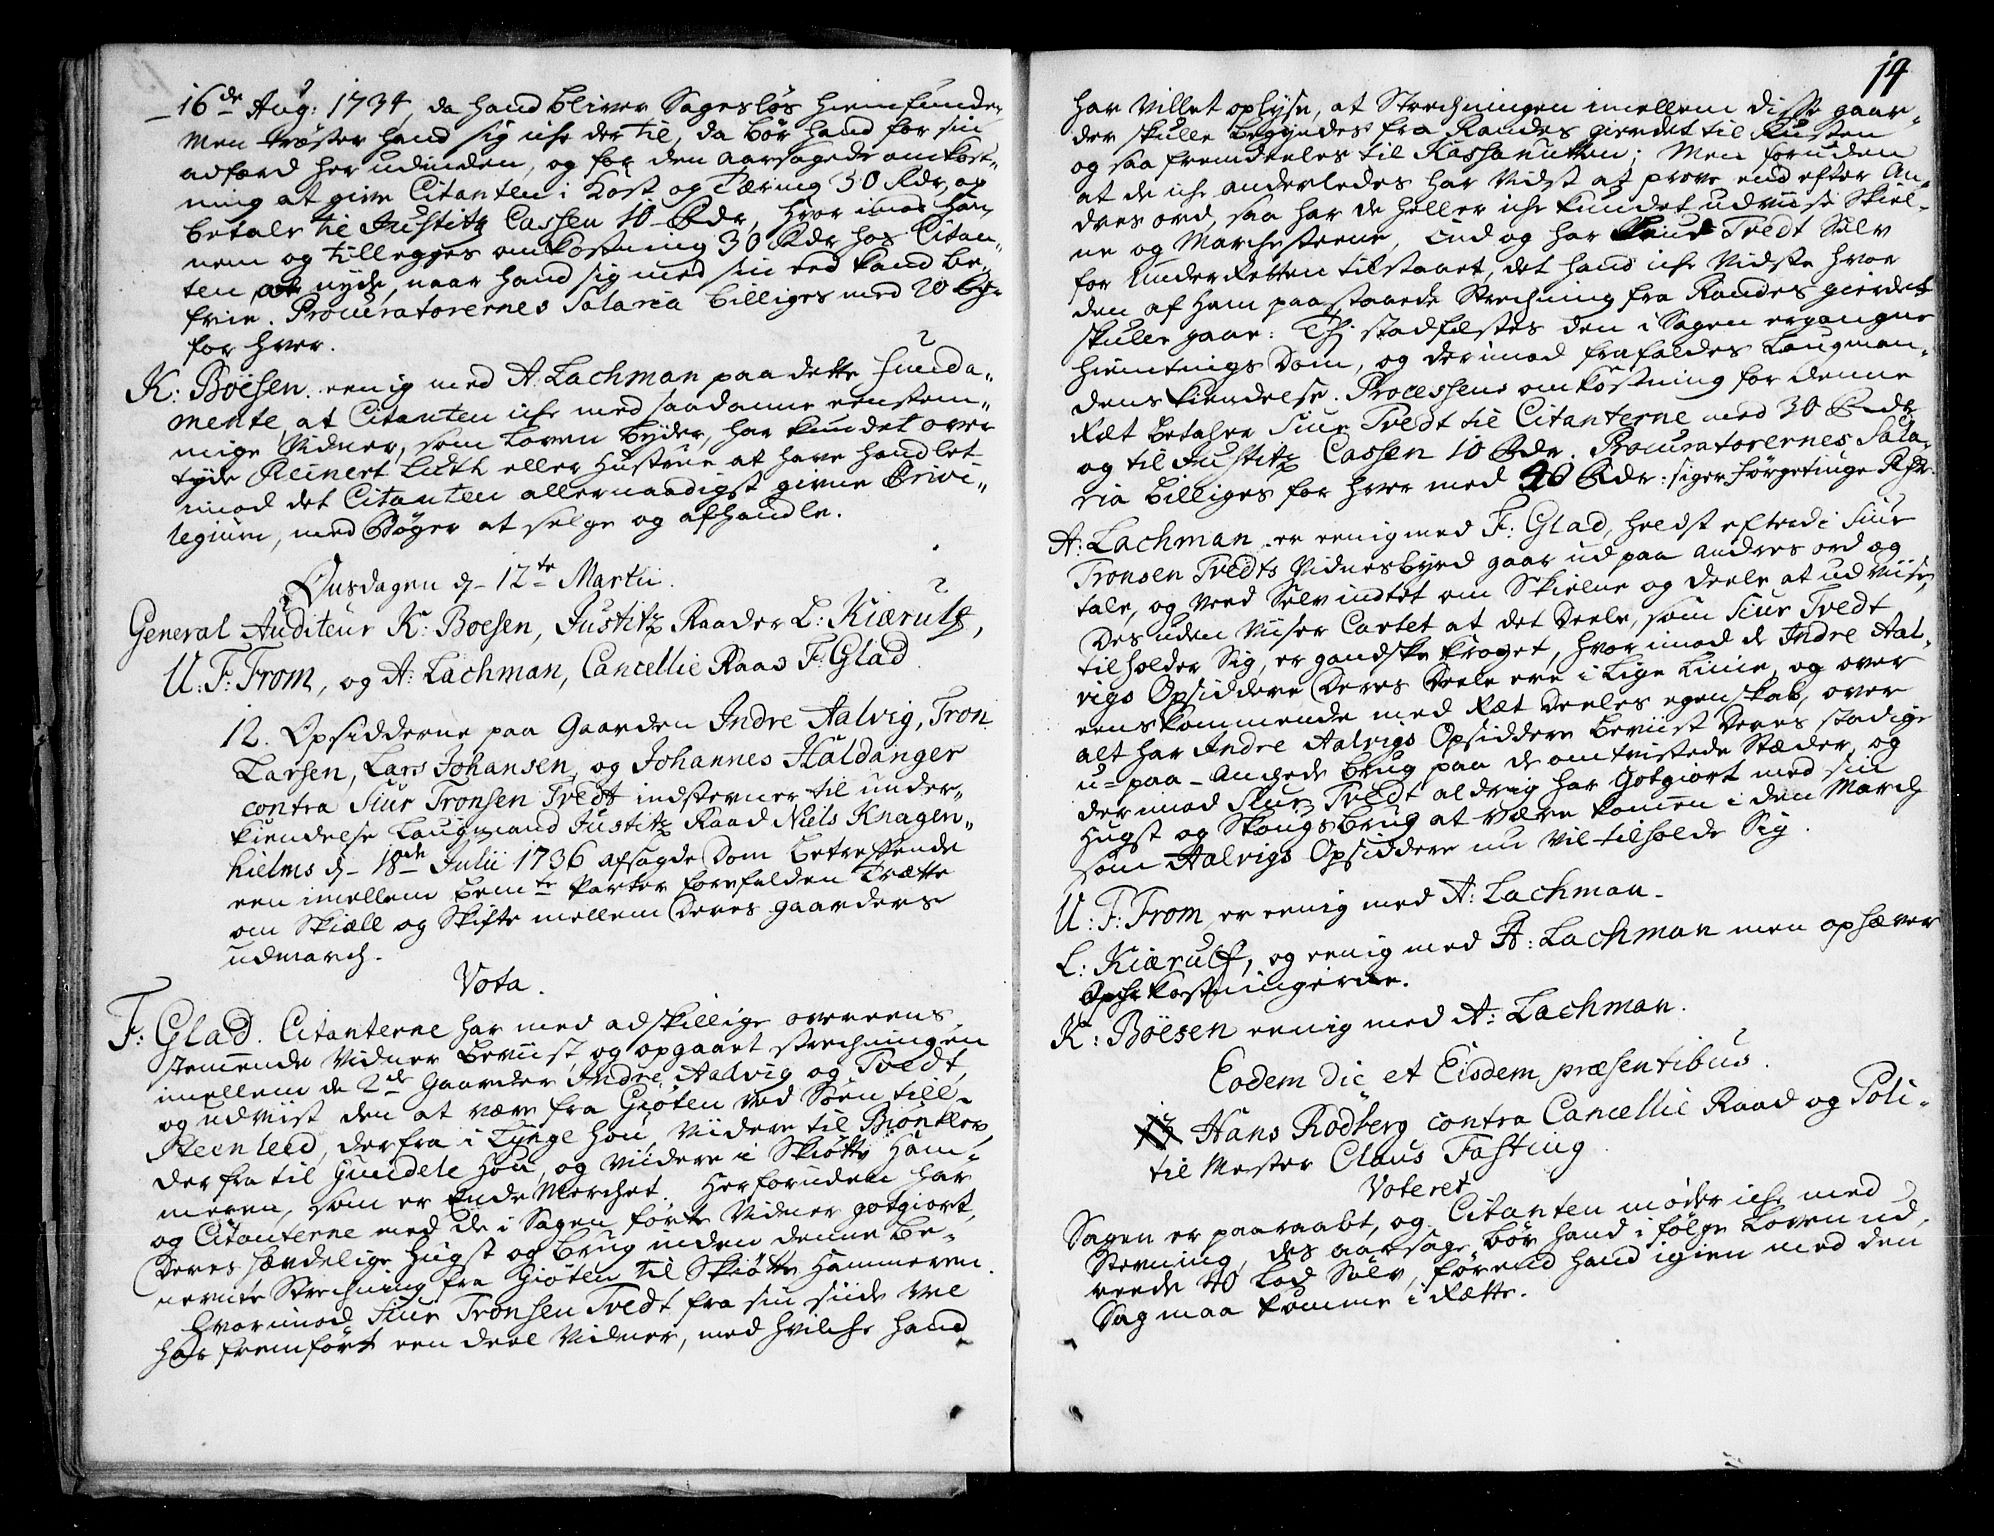 16de Aug: 1734, da hand bliver Sagesløs hiemfunde„
Men trøster hand sig iche der til, da bør hand for sin
adfærd her udinden, og for den aarsagede omkost„
ning at give Citanten i Kost og Tæring 30 Rdr, og
betale til Justitz Cassen 10 Rdr, hvor imod ham,
nem og tillegges omkostning 30 Rdr hos Citan„
ten at nyde, naar hand sig med sin eed kand be„
frie. Procuratorernes Salaria billiges med 20 Rdr
for hver.
K: Boesen. eenig med A: Lachman paa dette funda„
mente, at Citanten iche med saadanne eenstem„
mige Vidner, som Loven byder, har kundet over
tyde Reinert Luth eller Hustrue at have handlet
imod det Citanten allernaadigst givne Privi„
legium, med Bøger at selge og afhandle.
Onsdagen d- 12te Martii.
General Auditeur K: Boesen, Justitz Raader L: Kiærulf,
U: F: From, og A: Lachman, Cancellie Raad F: Glad
12. Opsidderne paa Gaarden Indre Aalvig, Tron
Larsen, Lars Johansen, og Johannes Haldanger
contra Siur Tronsen Tvedt indstevner til under„
kiendelse Laugmand Justitz Raad Niels Knagen„
hielms d- 18de Julii 1736 afsagde Dom betreffende
een imellem bemte Parter forefalden Trætte
om Skiæll og Skifte mellem Deres gaarders
udmarch.
Vota.
F: Glad. Citanterne har med adskillige overeens„
stemende Vidner beviist, og opgaaet strechningen
imellem de 2de Gaarder Indre Aalvig og Tvedt,
og udviist den at være fra Giøten ved Søen till
Steenleed, derfra i Lynge hou, Viidere til Biønklev,
derfra til Guudele hou, og Viidere i Skiøtte Ham„
meren, som er Ende Merchet. Herforuden har
og Citanterne med de i Sagen førte Vidner gotgiort,
Deres hævdelige hugst og brug inden denne be„
nevnte Strechning fra Giøten til Skiøtte Hammeren.
Hvorimod Siur Tronsen Tvedt fra sin siide vel
har fremført een deel Vidner, med hvilche hand
14
har Villet oplyse, at Strechningen imellem disse gaar„
der skulle begyndes fra Randes gierdet til Rusten
og saa fremdeeles til Kassanutten; Men foruden
at de iche anderledes har Vidst at prove end efter An„
dres ord, saa har de heller iche kundet udviise Skiel„
ne og Marchesteene, End og har Knud Tvedt Selv
for Underretten tilstaaet, det hand iche Vidste hvor
den af ham paastaaede Strechning fra Randes gierdet
skulle gaae: Thi stadfæstes den i Sagen ergangne
Hiemtings Dom, og derimod frafaldes Laugman„
dens kiendelse. Processens omkostning for denne
Ræt betaler Siur Tvedt til Citanterne med 30 Rdr
og til Justitz Cassen 10 Rdr. Procuratorernes Sala„
ria billiges for hver med 40 Rdr: siger førgetiuge Rdr.
A: Lachman er eenig med F: Glad, heldst efterdi Siur
Tronsen Tvedts Vidnesbyrd gaar ud paa andres ord og
tale, og veed Selv indtet om Skielne og deele at udviise,
Desuden viiser Cartet at det Deele, som Siur Tvedt
tilholder Sig, er gandske kroget, hvorimod de Indre Aal„
vigs Opsiddere Deres Deele ere i Lige Linie, og over
eenskommende med Ræt Deeles egenskab, over
alt har Indre Aalvigs Opsiddere beviist Deres stadige
u-paa-Anchede brug paa de omtvistede Stæder, og
derimod Siur Tvedt aldrig har Gotgiort med sin
hugst og Skougsbrug at være komen i den March
som Aalvigs Opsiddere nu vil tilholde Sig.
U: F: From er eenig med A: Lachman.
L: Kiærulf, og eenig med A: Lachman men ophæver
kostningerne.
K: Boësen eenig med A: Lachman.
Eodem Die et Eisdem præsentibus.
13 Hans Rodberg contra Cancellie Raad og Poli„
til Mester Claus Fasting
Voteret
Sagen er paaraabt, og Citanten møder iche med
Stevning, des aarsage bør hand i følge Loven ud„
reede 40 Lod Sølv, førend hand igien med den
Sag maa komme i Rætte.